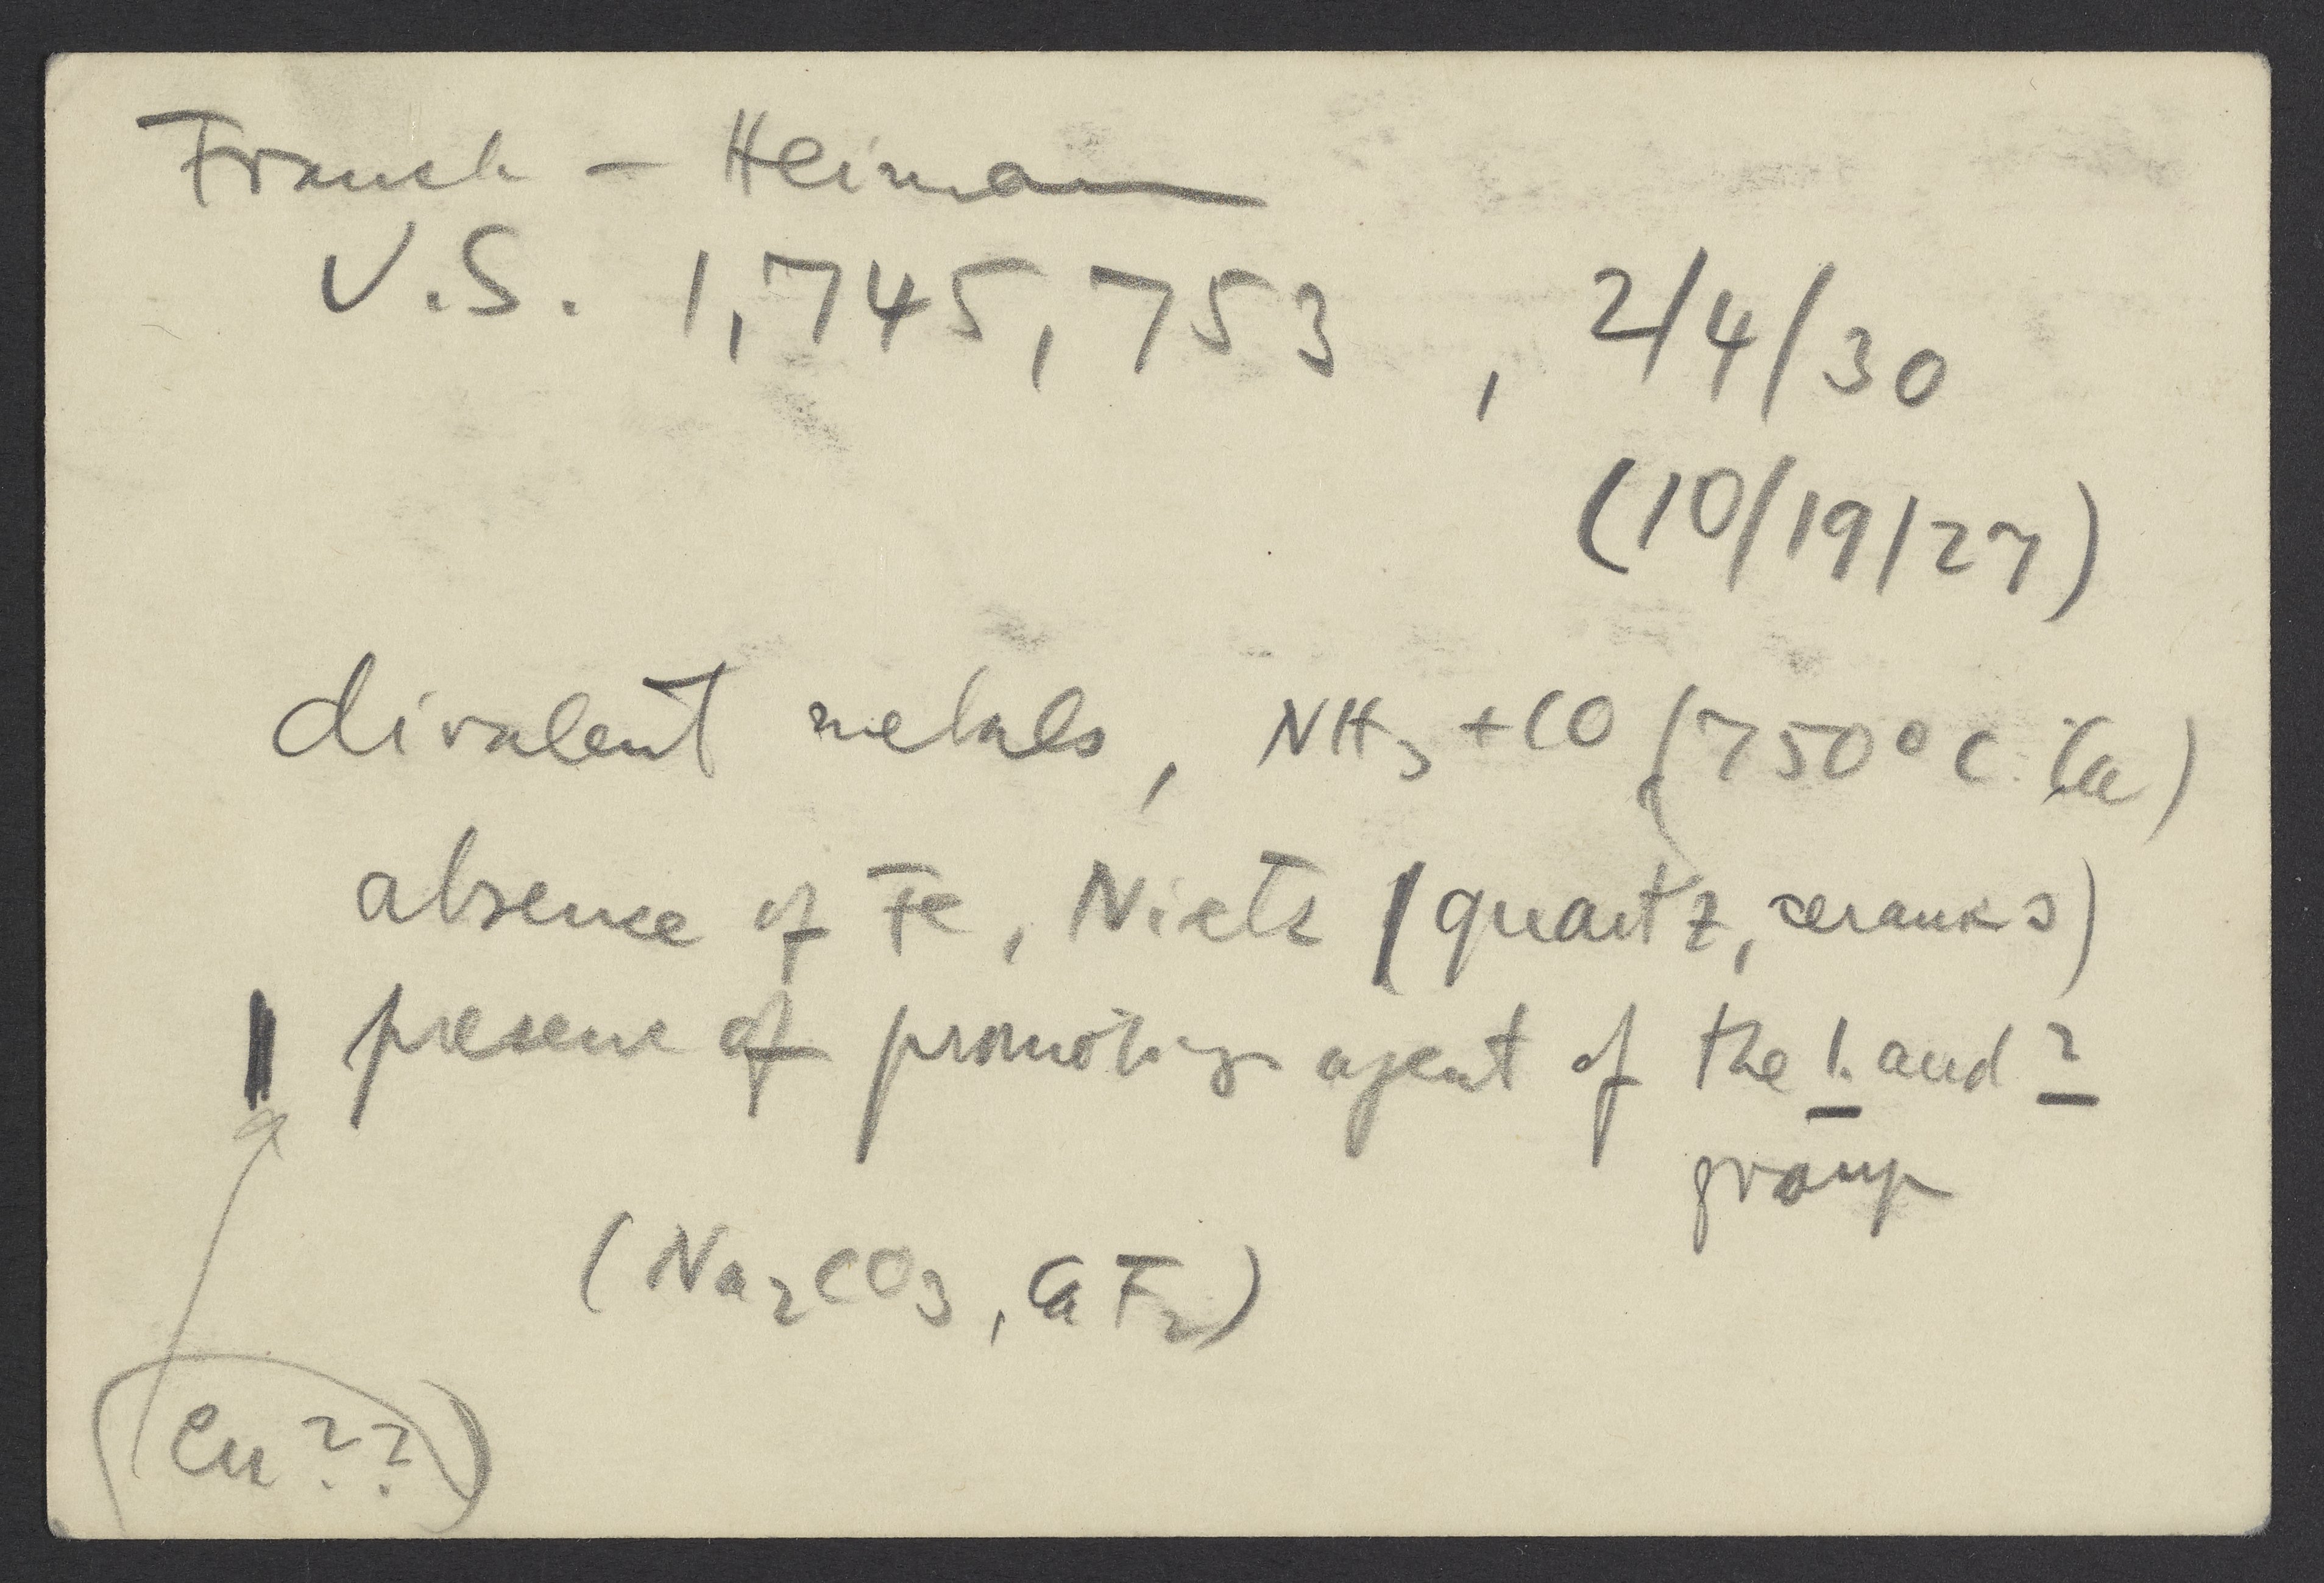 Franck – Heimann
U.S. 1,745,753 , 2/4/30
(10/19/27)
divalent metals, NH3 + CO (750°C Ca)
absence of Fe, Nickle (quartz, ceramics)
presence of promoting agent of the 1. and 2
group
(Na2CO3, CaF2)
(Cu??)